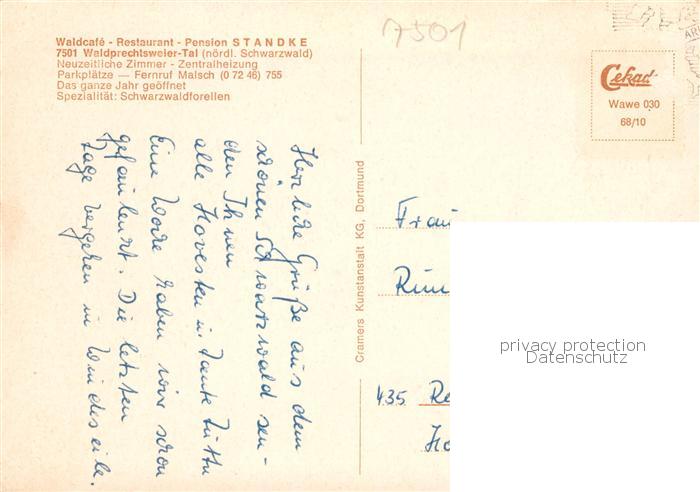 7501
Waldcafé - Restaurant - Pension STANDKE
7501 Waldprechtsweier-Tal (nördl. Schwarzwald)
Neuzeitliche Zimmer - Zentralheizung
Parkplätze — Fernruf Malsch (0 72 46) 755
Das ganze Jahr geöffnet
Spezialität: Schwarzwaldforellen
Herzliche Grüße aus dem
schönen Schwarzwald sen-
den Ihnen
alle Hovesten u. Tante
Eine Woche haben wir schon
gefaulenzt. Die letzten
Tage vergehen in Windeseile.
Cramers Kunstanstalt KG, Dortmund
Cekade
Wawe 030
68/10
Frau
435 Re
privacy protection
Datenschutz